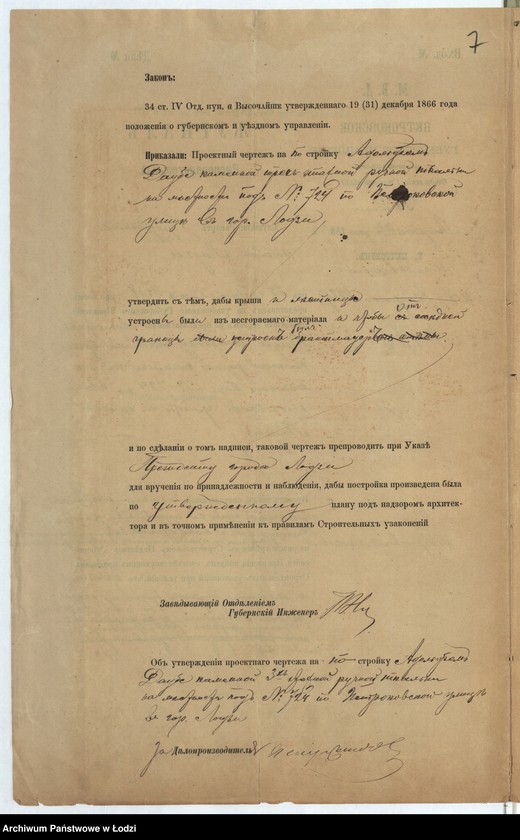 7
Законъ:
34 ст. IV Отд. пун. а Высочайше утвержденнаго 19 (31) декабря 1866 года
положенія о губернскомъ и уѣздномъ управленіи.
Приказали: Проектный чертежъ на по стройку Адольфомъ
Даубе каменной трехъ этажной ручной ткальни
на мѣстности подъ № 724 по Петроковской
улицѣ въ гор. Лодзи,
утвердить съ тѣмъ, дабы крыша и лѣстницы
устроены были изъ несгораемаго матеріала и чтобы отъ сосѣдней
границы
и по сдѣланіи о томъ надписи, таковой чертежъ препроводить при Указѣ
Президенту города Лодзи
для врученія по принадлежности и наблюденія, дабы постройка произведена была
по утвержденному плану подъ надзоромъ архитек-
тора и въ точномъ примѣненіи къ правиламъ Строительныхъ узаконеній
Завѣдывающій Отдѣленіемъ
Губернскій Инженеръ
Объ утвержденіи проектнаго чертежа на по стройку Адольфомъ
Даубе каменной 3хъ этажной ручной ткальни
на мѣстности подъ № 724 по Петроковской улицѣ
въ гор. Лодзи
За Дѣлопроизводителя
Archiwum Państwowe w Łodzi